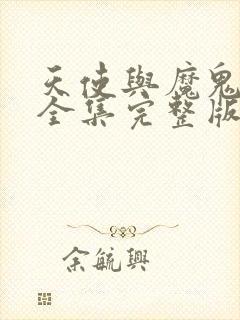 天使與魔鬼
全集完整版
余毓興